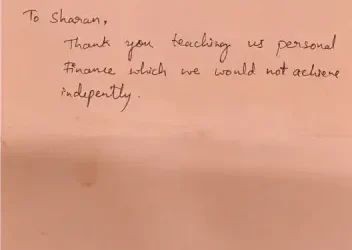 To Sharan,
Thank you teaching us personal
Finance which we would not achieve
indepently.